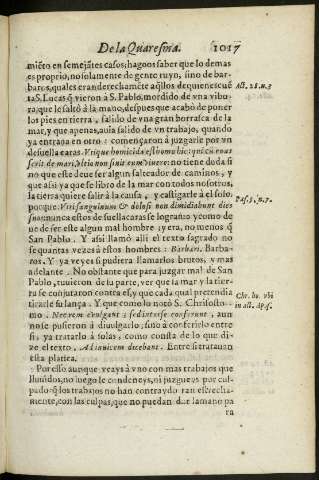 De la Quaresma. 1017
miẽto en semejãtes casos; hagoos saber que lo demas
es proprio, no solamente de gente ruyn, sino de bar-
baros, quales eran derechamẽte aq̃llos de quien escuẽ
ta S. Lucas, q̃ vieron à S. Pablo, mordido de vna vibu-
ra, que le saltò à la mano, despues que acabò de poner
los pies en tierra, salido de vna gran borrasca de la
mar, y que apenas, auia salido de vn trabajo, quando
ya entraua en otro: começaron à juzgarle por vn
desuella caras. Vtique homicida est homo hic: qui cũ eua-
serit de mari, vltio non sinit eum viuere: no tiene doda si
no que este deue ser algun salteador de caminos, y
que assi ya que se libro de la mar con todos nosotros,
la tierra quiere salir à la causa, y castigarle à el solo.
porque. Viri sanguinum & dolosi non dimidiabunt dies
suos: nunca estos desuellacaras se lograrõ: y como de
ue de ser este algun mal hombre: y era, no menos q̃
San Pablo. Y assi llamò alli el texto sagrado no
se quantas vezes à estos hombres: Barbari. Barba-
ros. Y ya veys si pudiera llamarlos brutos, y mas
adelante. No obstante que para juzgar mal de San
Pablo, tuuieron de su parte, ver que la mar y la tier-
ra se conjuraron contra el, y que cada qual pretendia
tirarle su lança. Y que como lo notò S. Chrisosto-
mo. Nec rem euulgant: sed inter se conferunt, aun
no se pusieron à diuulgarlo, sino à conferirlo entre
si, ya tratarlo à solas, como consta de lo que di-
ze el texto. Ad inuicem dicebant. Entre si tratauan
esta platica.
Por esso aunque veays à vno con mas trabajos que
llunidos, no luego le condeneys, ni juzgueys por cul-
pado: q̃ los trabajos no han contraydo tan estrecha-
mente, con las culpas, que no puedan dar la mano pa
ra
Act. 28. n. 3
&. 4.
Psa. 54. n. 7.
Chr. ho. vbi
in act. Ap. s.